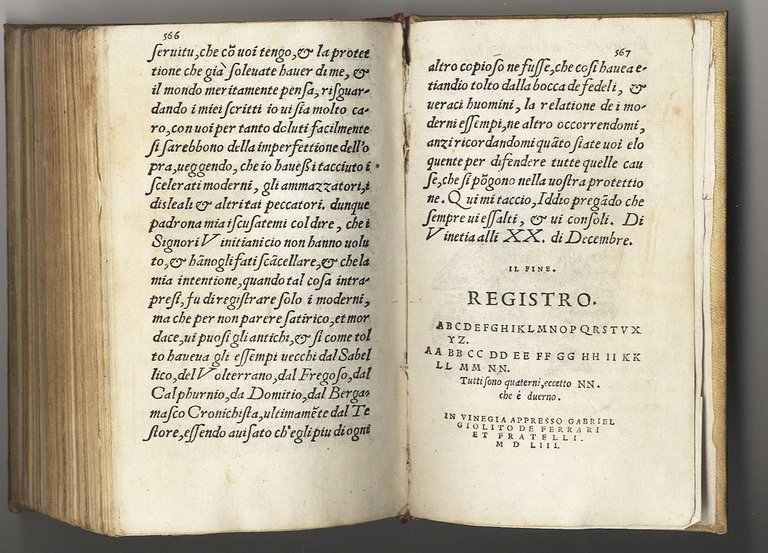 566
seruitu, che cõ uoi tengo, & la protet
tione che già soleuate hauer di me, &
il mondo meritamente pensa, risguar-
dando i miei scritti io ui sia molto ca-
ro, con uoi per tanto doluti facilmente
si sarebbono della imperfettione dell'o
pra, ueggendo, che io hauessi tacciuto i
scelerati moderni, gli ammazzatori, i
disleali & altri tai peccatori. dunque
padrona mia iscusatemi col dire, che i
Signori Vinitiani cio non hanno uolu
to, & hãnogli fati scãcellare, & che la
mia intentione, quando tal cosa intra-
presi, fu di registrare solo i moderni,
ma che per non parere satirico, et mor
dace, ui puosi gli antichi, & si come tol
to haueua gli essempi uecchi dal Sabel
lico, del Volterrano, dal Fregoso, dal
Calphurnio, da Domitio, dal Berga-
masco Cronichista, ultimamẽte dal Te
store, essendo auisato ch'egli piu di ogni
567
altro copioso ne fusse, che cosi hauea e-
tiandio tolto dalla bocca de fedeli, &
ueraci huomini, la relatione de i mo-
derni essempi, ne altro occorrendomi,
anzi ricordandomi quãto siate uoi elo
quente per difendere tutte quelle cau
se, che si põgono nella uostra protettio
ne. Qui mi taccio, Iddio pregãdo che
sempre ui essalti, & ui consoli. Di
Vinetia alli XX. di Decembre.
IL FINE.
REGISTRO.
ABCDEFGHIKLMNOPQRSTVX
YZ.
AA BB CC DD EE FF GG HH II KK
LL MM NN.
Tutti sono quaterni, eccetto NN.
che è duerno.
IN VINEGIA APPRESSO GABRIEL
GIOLITO DE FERRARI
ET FRATELLI.
M D LIII.